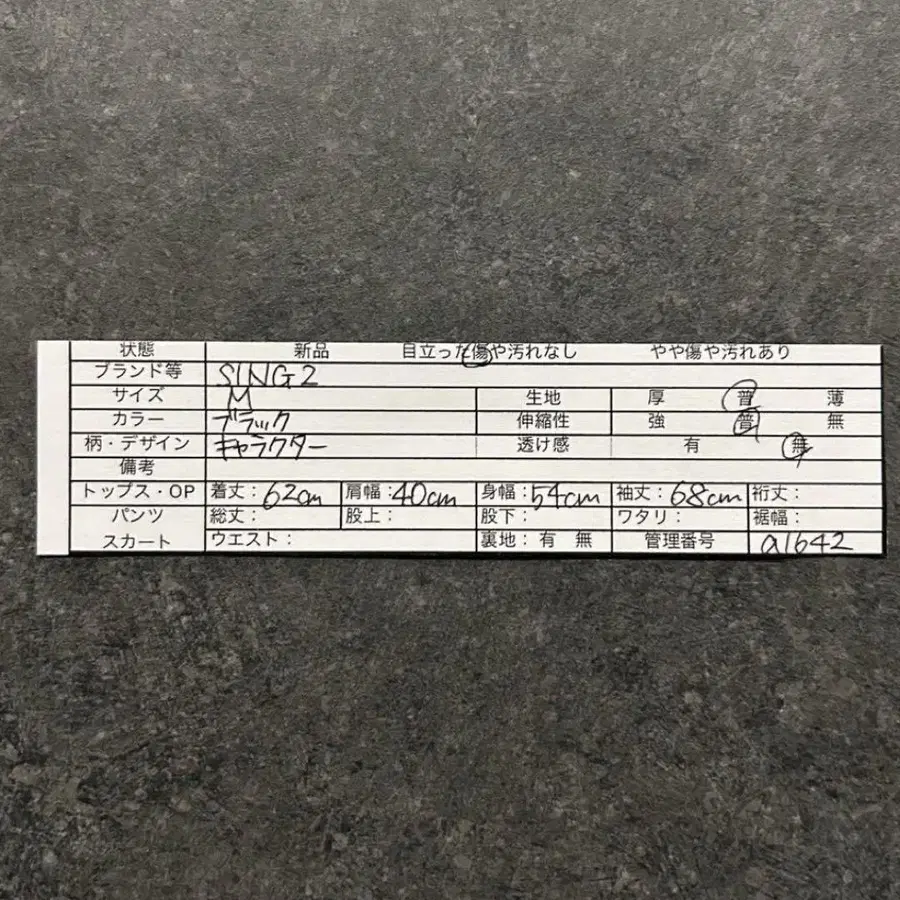 状態 新品 目立った傷や汚れなし やや傷や汚れあり
ブランド等 SING2
サイズ M 生地 厚 普 薄
カラー ブラック 伸縮性 強 普 無
柄・デザイン キャラクター 透け感 有 無
備考
トップス・OP 着丈：62cm 肩幅：40cm 身幅：54cm 袖丈：68cm 裄丈：
パンツ 総丈： 股上： 股下： ワタリ： 裾幅：
スカート ウエスト： 裏地：有 無 管理番号 a1642